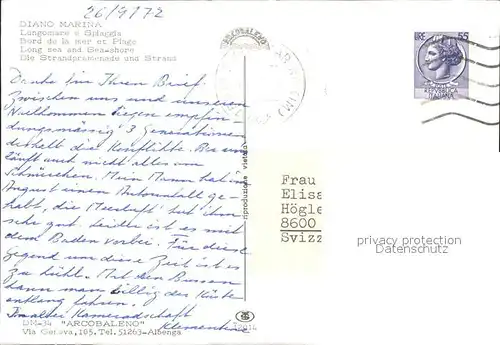 26/9/72
DIANO MARINA
Lungomare e Spiaggia
Bord de la mer et Plage
Long sea and Sea-shore
Die Strandpromenade und Strand
Danke für Ihren Brief.
Zwischen uns und unseren
liegen empfin
dungsmässig 3 Generationen
deshalb die Konflikte. Bei uns
läuft auch nicht alles am
Schnürchen. Mein Mann hat im
August einen Autounfall ge-
habt, die Meerluft tut ihm
sehr gut. Leider ist es mit
dem Baden vorbei. Für diese
Gegend um diese Zeit ist es
zu kühl. Mit den Bussen
kann man billig der Küste
entlang fahren.
In alter Kameradschaft
Klementine
DM-34 "ARCOBALENO"
Via Genova, 105. Tel. 51263 - Albenga
72014
riproduzione vietata
ARCOBALENO
LIRE 55
REPUBBLICA
ITALIANA
Frau
Elisa
Högle
8600
Svizz
privacy protection
Datenschutz